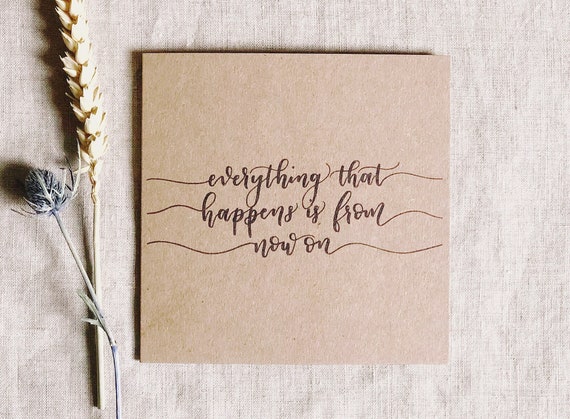 everything that
happens is from
now on